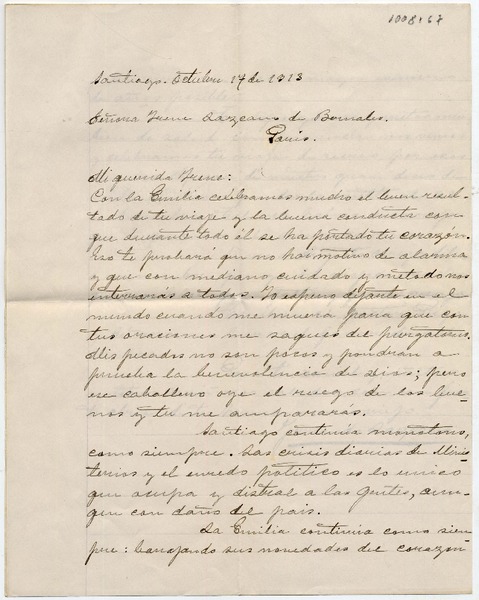 1008167
Santiago. Octubre 17 de 1913
Señora Irene Lazcano de Bernales.
Paris.
Mi querida Irene:
Con la Emilia celebramos mucho el buen resul-
tado de tu viaje y la buena conducta con
que durante todo él se ha portado tu corazón.
Eso te probará que no hai motivo de alarma
y que con mediano cuidado y método nos
enterrarás a todos. Yo espero dejarte en el
mundo cuando me muera para que con
tus oraciones me saques del purgatorio.
Mis pecados no son pocos y pondran a
prueba la benevolencia de Dios; pero
ese caballero oye el ruego de los bue-
nos y tu me ampararás.
Santiago continúa monótono,
como siempre. Las crisis diarias de Minis-
terios y el enredo político es lo unico
que ocupa y distrae a las gentes, aun-
que con daño del pais.
La Emilia continúa como siem-
pre: barajando sus novedades del corazón